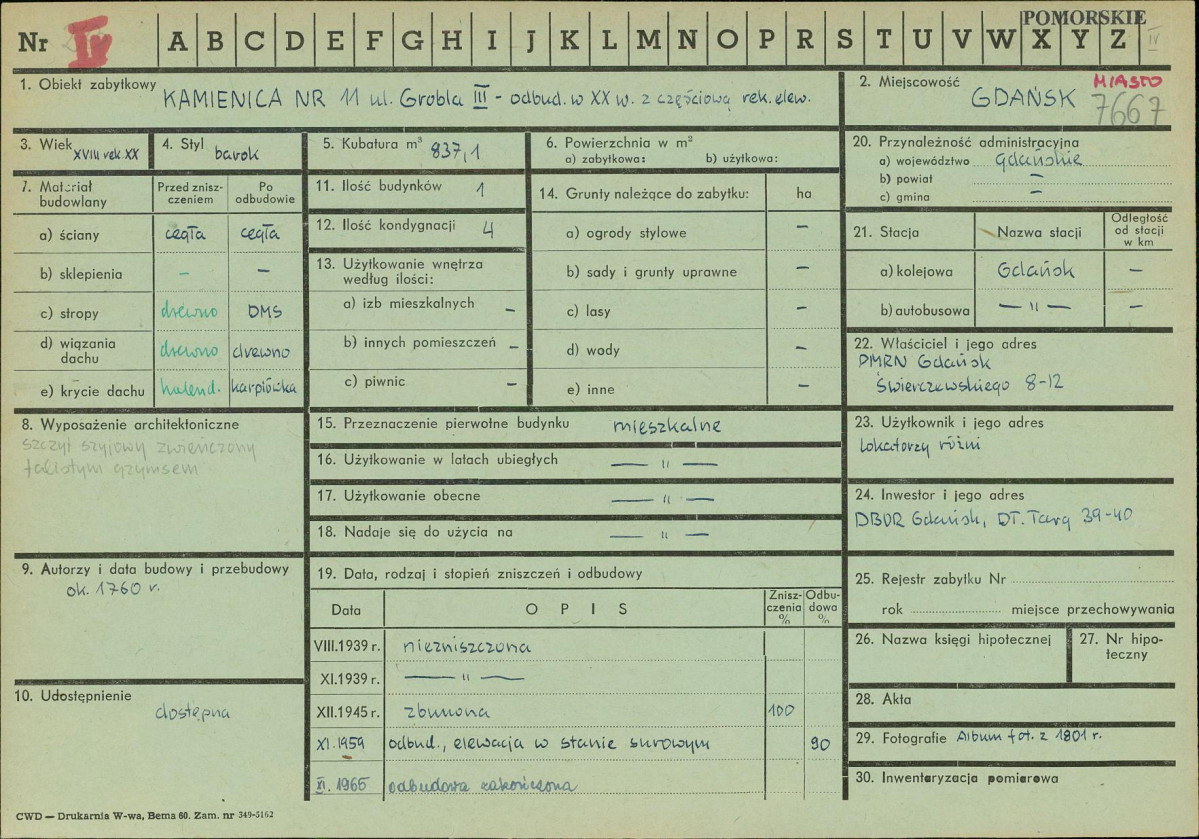 POMORSKIE
Nr IV A B C D E F G H I J K L M N O P R S T U V W X Y Z IV
1. Obiekt zabytkowy KAMIENICA NR 11 ul. Grobla III - odbud. w XX w. z częściową rek. elew.
2. Miejscowość GDAŃSK MIASTO
7667
3. Wiek XVIII rek. XX
4. Styl barok
5. Kubatura m³ 837,1
6. Powierzchnia w m²
a) zabytkowa: b) użytkowa:
7. Materiał budowlany
Przed zniszczeniem
Po odbudowie
a) ściany cegła cegła
b) sklepienia – –
c) stropy drewno DMS
d) wiązania dachu drewno drewno
e) krycie dachu holend. karpiówka
8. Wyposażenie architektoniczne
szczyt szyjowy zwieńczony
falistym gzymsem
9. Autorzy i data budowy i przebudowy
ok. 1760 r.
10. Udostępnienie
dostępna
11. Ilość budynków 1
12. Ilość kondygnacji 4
13. Użytkowanie wnętrza
według ilości:
a) izb mieszkalnych –
b) innych pomieszczeń –
c) piwnic –
14. Grunty należące do zabytku: ha
a) ogrody stylowe –
b) sady i grunty uprawne –
c) lasy –
d) wody –
e) inne –
15. Przeznaczenie pierwotne budynku mieszkalne
16. Użytkowanie w latach ubiegłych — " —
17. Użytkowanie obecne — " —
18. Nadaje się do użycia na — " —
19. Data, rodzaj i stopień zniszczeń i odbudowy
Data OPIS Zniszczenia % Odbudowa %
VIII.1939 r. niezniszczona
XI.1939 r. — " —
XII.1945 r. zburzona 100
XI.1959 odbud., elewacja w stanie surowym 90
XI.1965 odbudowa zakończona
20. Przynależność administracyjna
a) województwo gdańskie
b) powiat –
c) gmina –
21. Stacja Nazwa stacji Odległość od stacji w km
a) kolejowa Gdańsk –
b) autobusowa — " — –
22. Właściciel i jego adres
PMRN Gdańsk
Świerczewskiego 8-12
23. Użytkownik i jego adres
Lokatorzy różni
24. Inwestor i jego adres
DBOR Gdańsk, Dł. Targ 39-40
25. Rejestr zabytku Nr
rok miejsce przechowywania
26. Nazwa księgi hipotecznej
27. Nr hipoteczny
28. Akta
29. Fotografie Album fot. z 1801 r.
30. Inwentaryzacja pomiarowa
CWD — Drukarnia W-wa, Bema 60. Zam. nr 349-5162